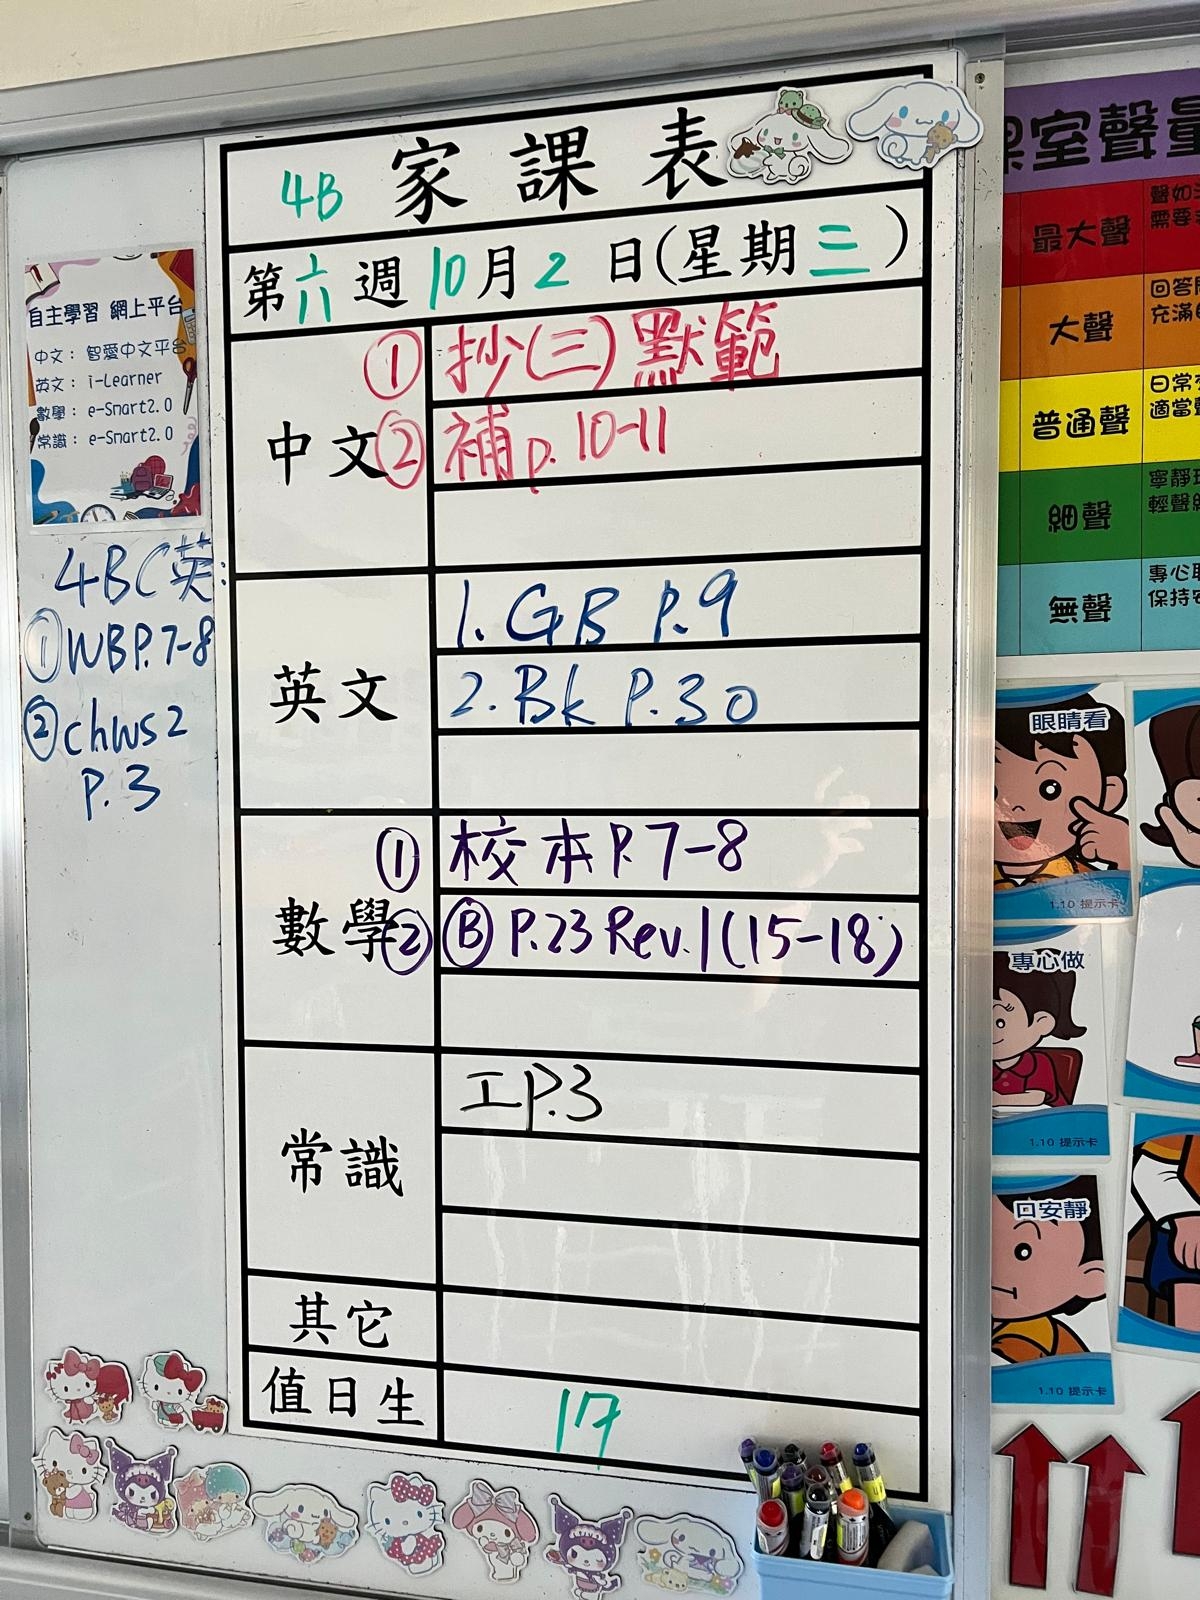 4B 家課表
第六週 10月2日(星期三)
中文
① 抄(三)默範
② 補 p. 10-11
英文
1. GB P.9
2. Bk P.30
數學
① 校本 P.7-8
② Ⓑ P.23 Rev.1 (15-18)
常識
工P.3
其它
值日生
17
自主學習 網上平台
中文： 智愛中文平台
英文： i-Learner
數學： e-Smart2.0
常識： e-Smart2.0
4BC英
① WB P.7-8
② chws2
P.3
室聲量
最大聲
聲如
需要
大聲
回答
充滿
普通聲
日常
適當
細聲
寧靜
輕聲
無聲
專心
保持
眼睛看
1.10 提示卡
專心做
1.10 提示卡
口安靜
1.10 提示卡